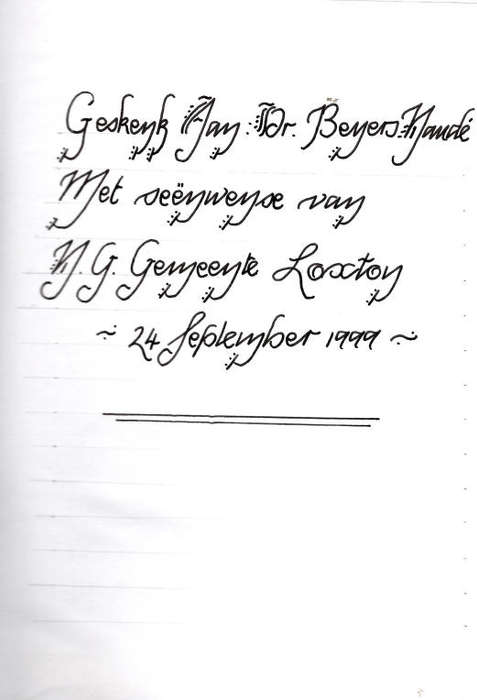 Geskenk Aan Dr. Beyers Naudé
Met seënwense van
N.G. Gemeente Loxton
~ 24 September 1999 ~